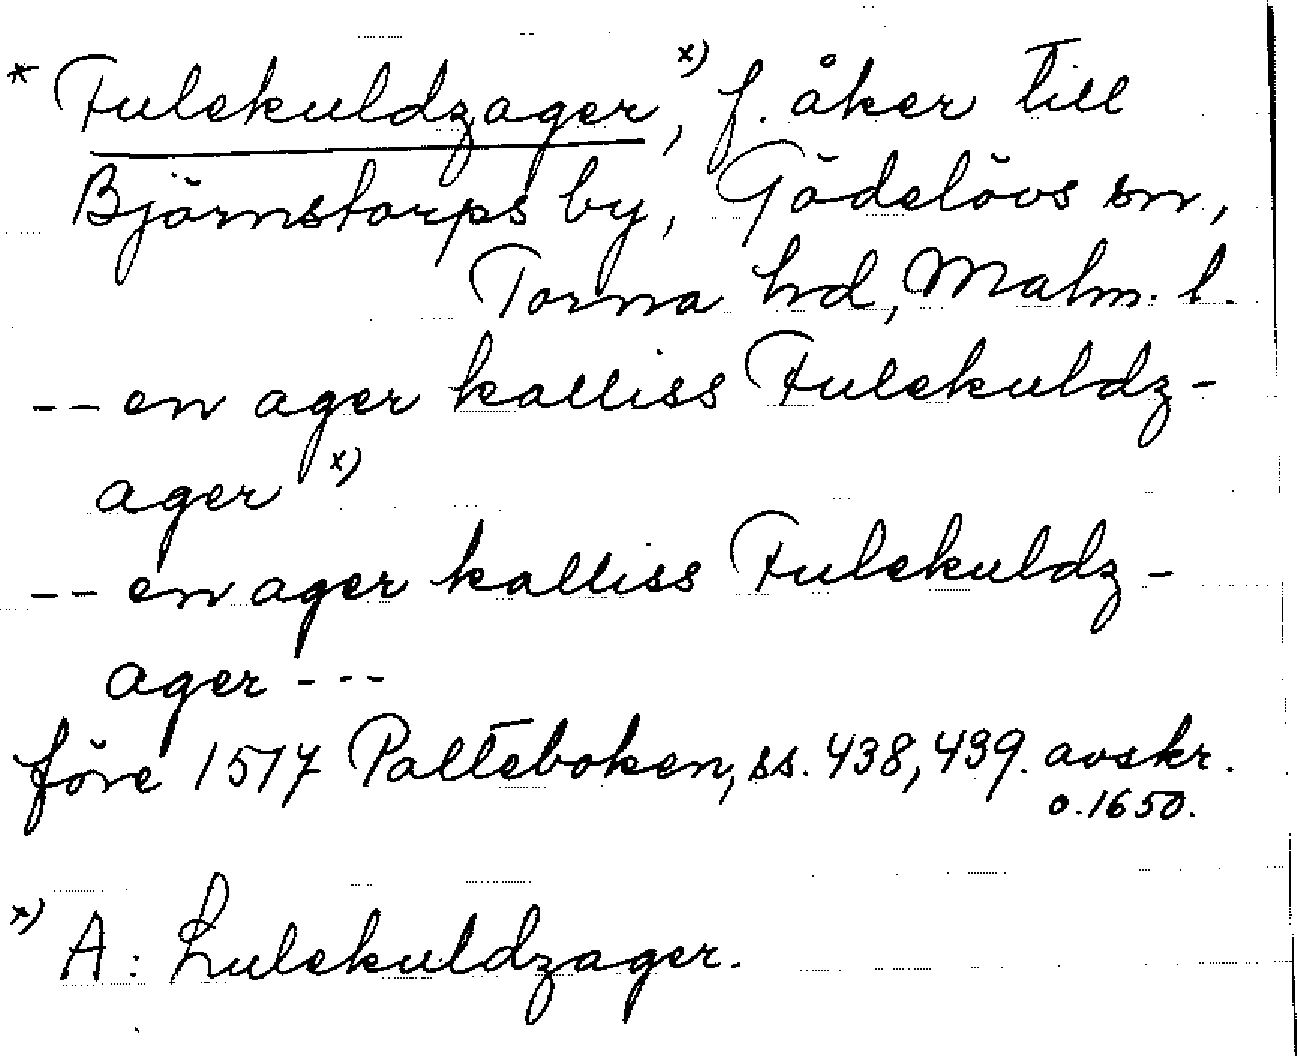 * Fulekuldzager, x) f. åker till
Björnstorps by, Gödelövs sn,
Torna hd, Malm. l.
-- en ager kalliss Fulekuldz-
ager x)
-- en ager kalliss Fulekuldz-
ager ---
före 1517 Palteboken, ss. 438, 439. avskr.
o. 1650.
x) A: Lulekuldzager.